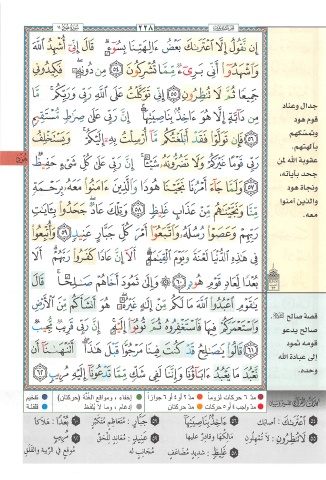 ٢٢٨
إِن نَّقُولُ إِلَّا ٱعْتَرَىٰكَ بَعْضُ ءَالِهَتِنَا بِسُوٓءٍ ۗ قَالَ إِنِّىٓ أُشْهِدُ ٱللَّهَ
وَٱشْهَدُوٓا۟ أَنِّى بَرِىٓءٌ مِّمَّا تُشْرِكُونَ ﴿٥٤﴾ مِن دُونِهِۦ ۖ فَكِيدُونِى
جَمِيعًا ثُمَّ لَا تُنظِرُونِ ﴿٥٥﴾ إِنِّى تَوَكَّلْتُ عَلَى ٱللَّهِ رَبِّى وَرَبِّكُم ۚ مَّا
مِن دَآبَّةٍ إِلَّا هُوَ ءَاخِذٌۢ بِنَاصِيَتِهَآ ۚ إِنَّ رَبِّى عَلَىٰ صِرَٰطٍ مُّسْتَقِيمٍ
﴿٥٦﴾ فَإِن تَوَلَّوْا۟ فَقَدْ أَبْلَغْتُكُم مَّآ أُرْسِلْتُ بِهِۦٓ إِلَيْكُمْ ۚ وَيَسْتَخْلِفُ
رَبِّى قَوْمًا غَيْرَكُمْ وَلَا تَضُرُّونَهُۥ شَيْـًٔا ۚ إِنَّ رَبِّى عَلَىٰ كُلِّ شَىْءٍ حَفِيظٌ
﴿٥٧﴾ وَلَمَّا جَآءَ أَمْرُنَا نَجَّيْنَا هُودًا وَٱلَّذِينَ ءَامَنُوا۟ مَعَهُۥ بِرَحْمَةٍ
مِّنَّا وَنَجَّيْنَٰهُم مِّنْ عَذَابٍ غَلِيظٍ ﴿٥٨﴾ وَتِلْكَ عَادٌ ۖ جَحَدُوا۟ بِـَٔايَٰتِ
رَبِّهِمْ وَعَصَوْا۟ رُسُلَهُۥ وَٱتَّبَعُوٓا۟ أَمْرَ كُلِّ جَبَّارٍ عَنِيدٍ ﴿٥٩﴾ وَأُتْبِعُوا۟
فِى هَٰذِهِ ٱلدُّنْيَا لَعْنَةً وَيَوْمَ ٱلْقِيَٰمَةِ ۗ أَلَآ إِنَّ عَادًا كَفَرُوا۟ رَبَّهُمْ ۗ أَلَا
بُعْدًا لِّعَادٍ قَوْمِ هُودٍ ﴿٦٠﴾ وَإِلَىٰ ثَمُودَ أَخَاهُمْ صَٰلِحًا ۚ قَالَ
يَٰقَوْمِ ٱعْبُدُوا۟ ٱللَّهَ مَا لَكُم مِّنْ إِلَٰهٍ غَيْرُهُۥ ۖ هُوَ أَنشَأَكُم مِّنَ ٱلْأَرْضِ
وَٱسْتَعْمَرَكُمْ فِيهَا فَٱسْتَغْفِرُوهُ ثُمَّ تُوبُوٓا۟ إِلَيْهِ ۚ إِنَّ رَبِّى قَرِيبٌ مُّجِيبٌ
﴿٦١﴾ قَالُوا۟ يَٰصَٰلِحُ قَدْ كُنتَ فِينَا مَرْجُوًّا قَبْلَ هَٰذَآ ۖ أَتَنْهَىٰنَآ أَن
نَّعْبُدَ مَا يَعْبُدُ ءَابَآؤُنَا وَإِنَّنَا لَفِى شَكٍّ مِّمَّا تَدْعُونَآ إِلَيْهِ مُرِيبٍ ﴿٦٢﴾
جدال وعناد
قوم هود
وتمسكهم
بآلهتهم،
عقوبة الله لمن
جحد بآياته،
ونجاة هود
والذين آمنوا
معه.
هود
قصة صالح
صالح يدعو
قومه ثمود
إلى عبادة الله
وحده.
مدّ ٦ حركات لزوماً
مدّ ٢ أو ٤ أو ٦ جوازاً
إخفاء، ومواقع الغُنّة (حركتان)
تفخيم
مدّ واجب ٤ أو ٥ حركات
مدّ حركتان
إدغام، وما لا يُلفَظ
قلقلة
اعْتَرَاكَ: أصابك
لَا تُنظِرُونِ: لا تُمهِلُون
غَلِيظٍ: شديد مضاعف
جَبَّارٍ: متعاظم متكبر
عَنِيدٍ: معاند للحق
بُعْدًا: هلاكاً
مُرِيبٍ
موقع في الريبة والقلق